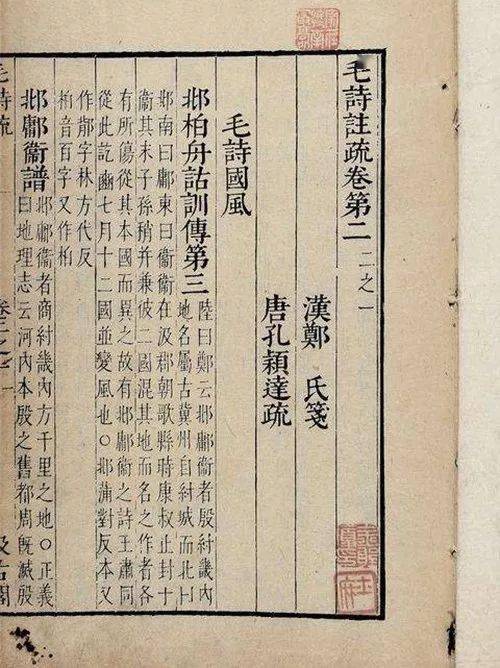 毛詩註疏卷第二 二之一
漢鄭 氏箋
唐孔穎達疏
毛詩國風
邶柏舟詁訓傳第三 陸曰鄭云邶鄘衞者殷紂畿內
地名屬古冀州自紂城而北曰
邶南曰鄘東曰衞衞在汲郡朝歌縣時康叔止封十
衞其末子孫稍并兼彼二國混其地而名之作者各
有所傷從其本國而異之故有邶鄘衞之詩王肅同
從此訖豳七月十二國並變風也○邶蒲對反本又
作鄁字林方代反
柏音百字又作栢
邶鄘衞譜 邶鄘衞者商紂畿內方千里之地○正義
曰地理志云河內本殷之舊都周旣滅殷
毛詩疏 卷二之一 汲古閣